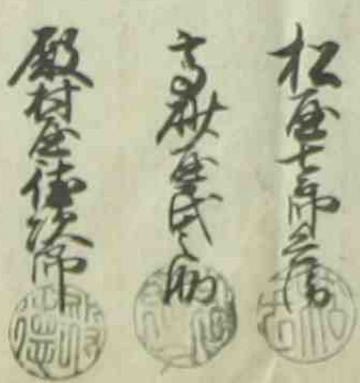 松屋七郎兵衛
高砂屋民之助
殿村屋徳次郎